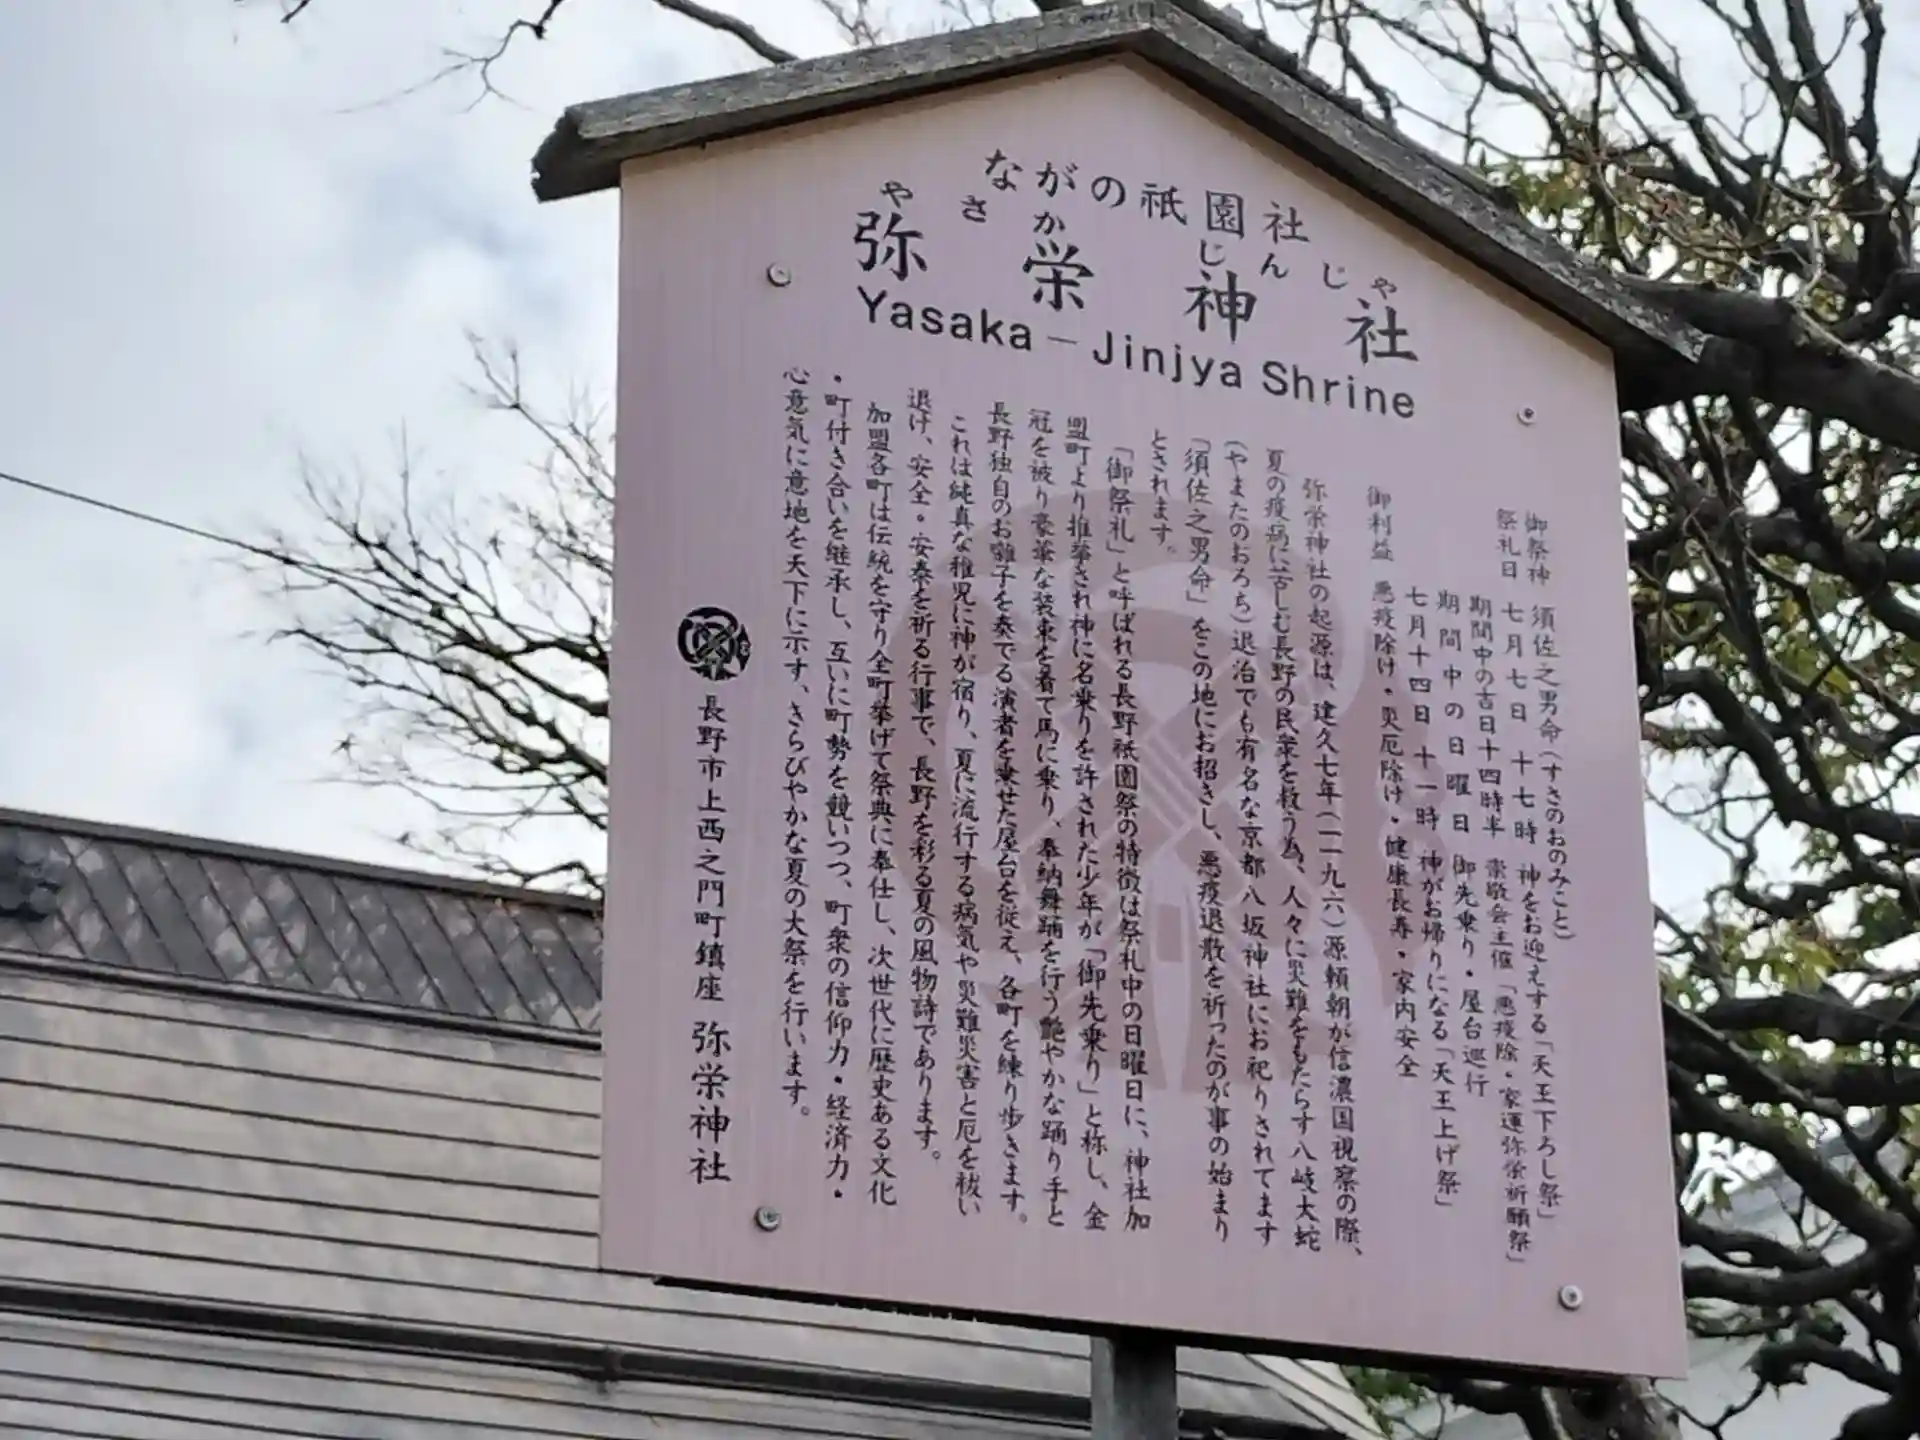 ながの祇園社
やさか じんじや
弥栄神社
Yasaka – Jinjya Shrine
御祭神 須佐之男命(すさのおのみこと)
祭礼日 七月七日 十七時 神をお迎えする「天王下ろし祭」
期間中の吉日十四時半 崇敬会主催「悪疫除・家運弥栄祈願祭」
期間中の日曜日 御先乗り・屋台巡行
七月十四日 十一時 神がお帰りになる「天王上げ祭」
御利益 悪疫除け・災厄除け・健康長寿・家内安全
弥栄神社の起源は、建久七年(一一九六)源頼朝が信濃国視察の際、
夏の疫病に苦しむ長野の民衆を救う為、人々に災難をもたらす八岐大蛇
(やまたのおろち)退治でも有名な京都八坂神社にお祀りされてます
「須佐之男命」をこの地にお招きし、悪疫退散を祈ったのが事の始まり
とされます。
「御祭礼」と呼ばれる長野祇園祭の特徴は祭礼中の日曜日に、神社加
盟町より推挙され神に名乗りを許された少年が「御先乗り」と称し、金
冠を被り豪華な装束を着て馬に乗り、奉納舞踊を行う艶やかな踊り手と
長野独自のお囃子を奏でる演者を乗せた屋台を従え、各町を練り歩きます。
これは純真な稚児に神が宿り、夏に流行する病気や災難災害と厄を祓い
退け、安全・安泰を祈る行事で、長野を彩る夏の風物詩であります。
加盟各町は伝統を守り全町挙げて祭典に奉仕し、次世代に歴史ある文化
・町付き合いを継承し、互いに町勢を競いつつ、町衆の信仰力・経済力・
心意気に意地を天下に示す、きらびやかな夏の大祭を行います。
長野市上西之門町鎮座 弥栄神社